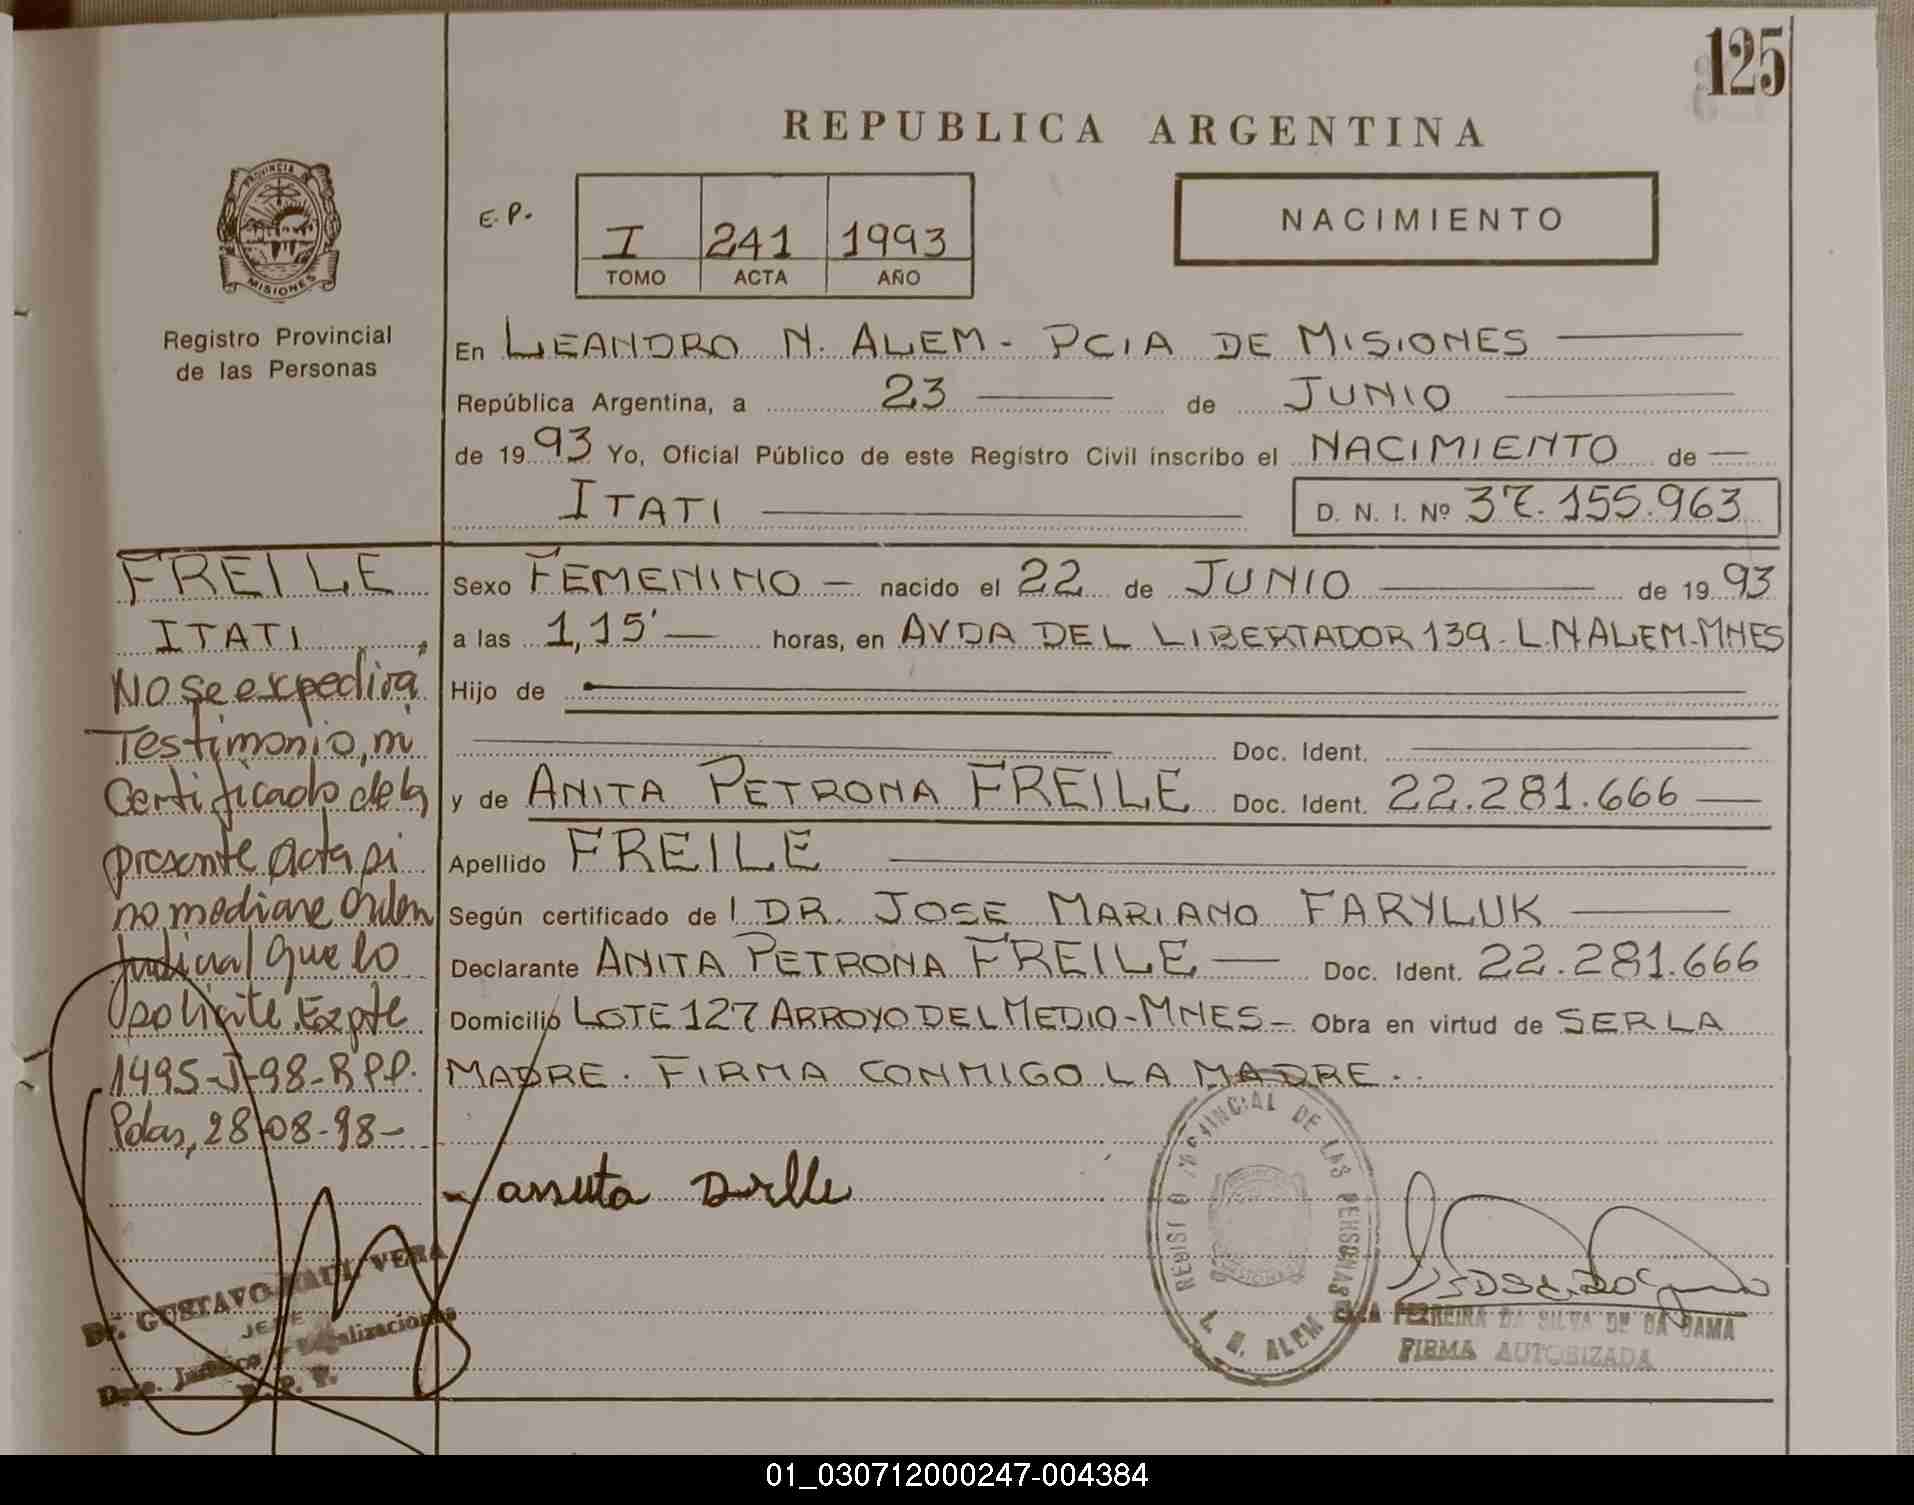 125
REPUBLICA ARGENTINA
PROVINCIA DE
MISIONES
Registro Provincial
de las Personas
E.P.
I 241 1993
TOMO ACTA AÑO
NACIMIENTO
En LEANDRO N. ALEM - PCIA DE MISIONES
República Argentina, a 23 de JUNIO
de 1993 Yo, Oficial Público de este Registro Civil inscribo el NACIMIENTO de
ITATI
D. N. I. Nº 37.155.963
Sexo FEMENINO - nacido el 22 de JUNIO de 1993
a las 1,15' horas, en AVDA DEL LIBERTADOR 139 - L.N ALEM - MNES
Hijo de
Doc. Ident.
y de ANITA PETRONA FREILE Doc. Ident. 22.281.666
Apellido FREILE
Según certificado de DR. JOSE MARIANO FARYLUK
Declarante ANITA PETRONA FREILE - Doc. Ident. 22.281.666
Domicilio LOTE 127 ARROYO DEL MEDIO - MNES - Obra en virtud de SER LA
MADRE. FIRMA CONMIGO LA MADRE..
FREILE
ITATI,
No se expedira
Testimonio, ni
Certificado de la
presente Acta si
no mediare Orden
Judicial que lo
solicite. Expte
1495-J-98-R.P.P.
Pdas, 28-08-98-
Dr. GUSTAVO RAUL VERA
JEFE
Dpto. Jurídico y Legalizaciones
R. P. P.
REGISTRO PROVINCIAL DE LAS PERSONAS
L. N. ALEM
ELSA FERREIRA DA SILVA DE DA GAMA
FIRMA AUTORIZADA
01_030712000247-004384